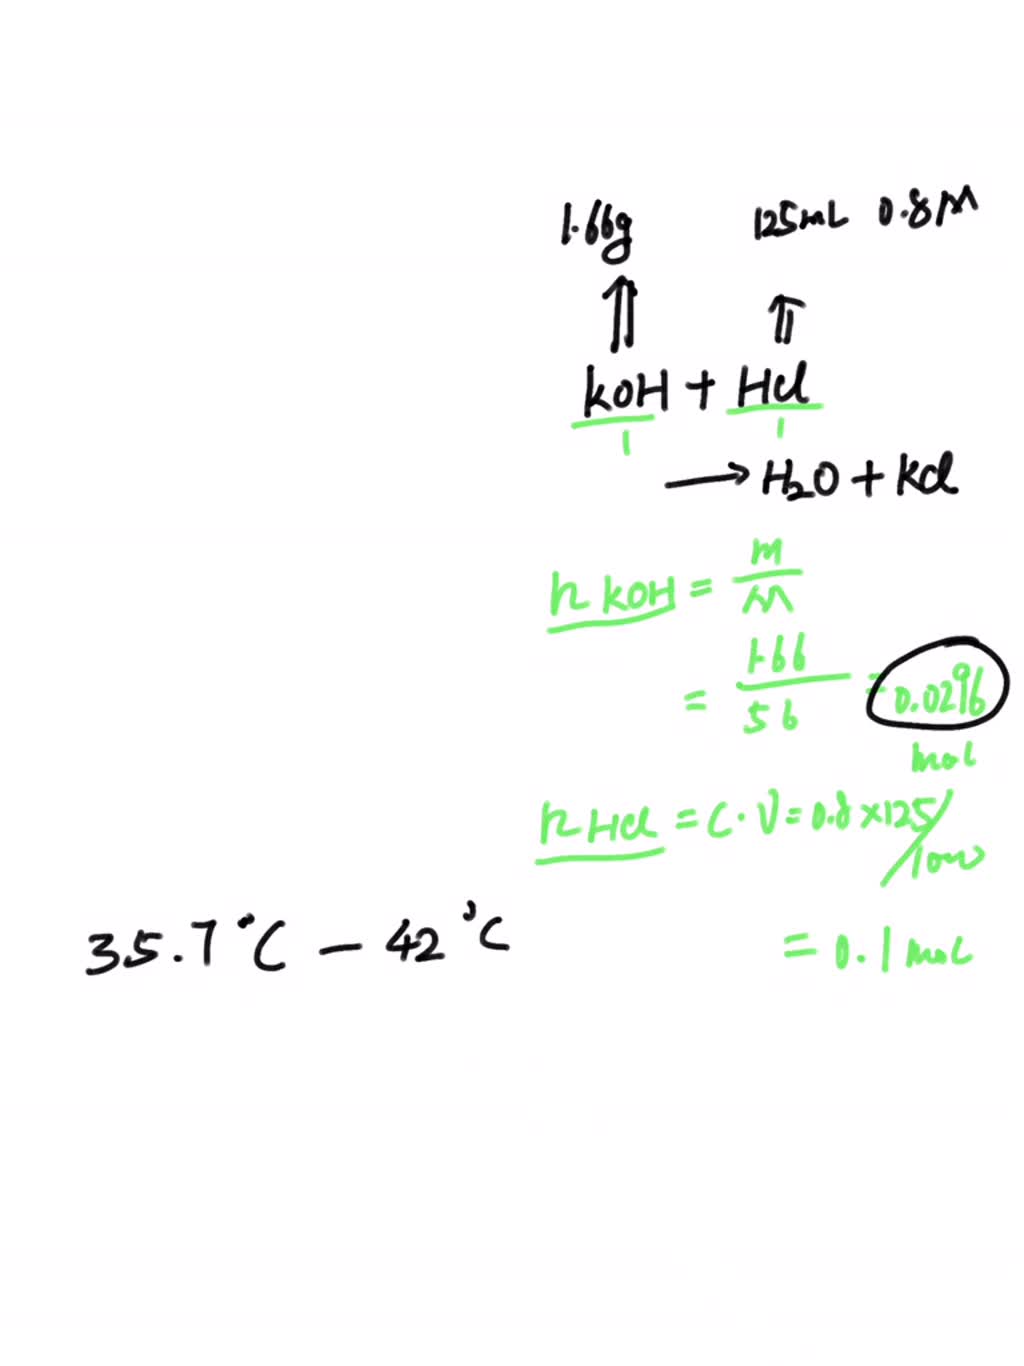 1.66g 125mL 0.8M
⇑ ⇑
KOH + HCl
1 1
→ H₂O + KCl
n KOH = m/M
= 1.66/56 = 0.0296
mol
n HCl = C·V = 0.8×125/1000
= 0.1 mol
35.7°C – 42°C